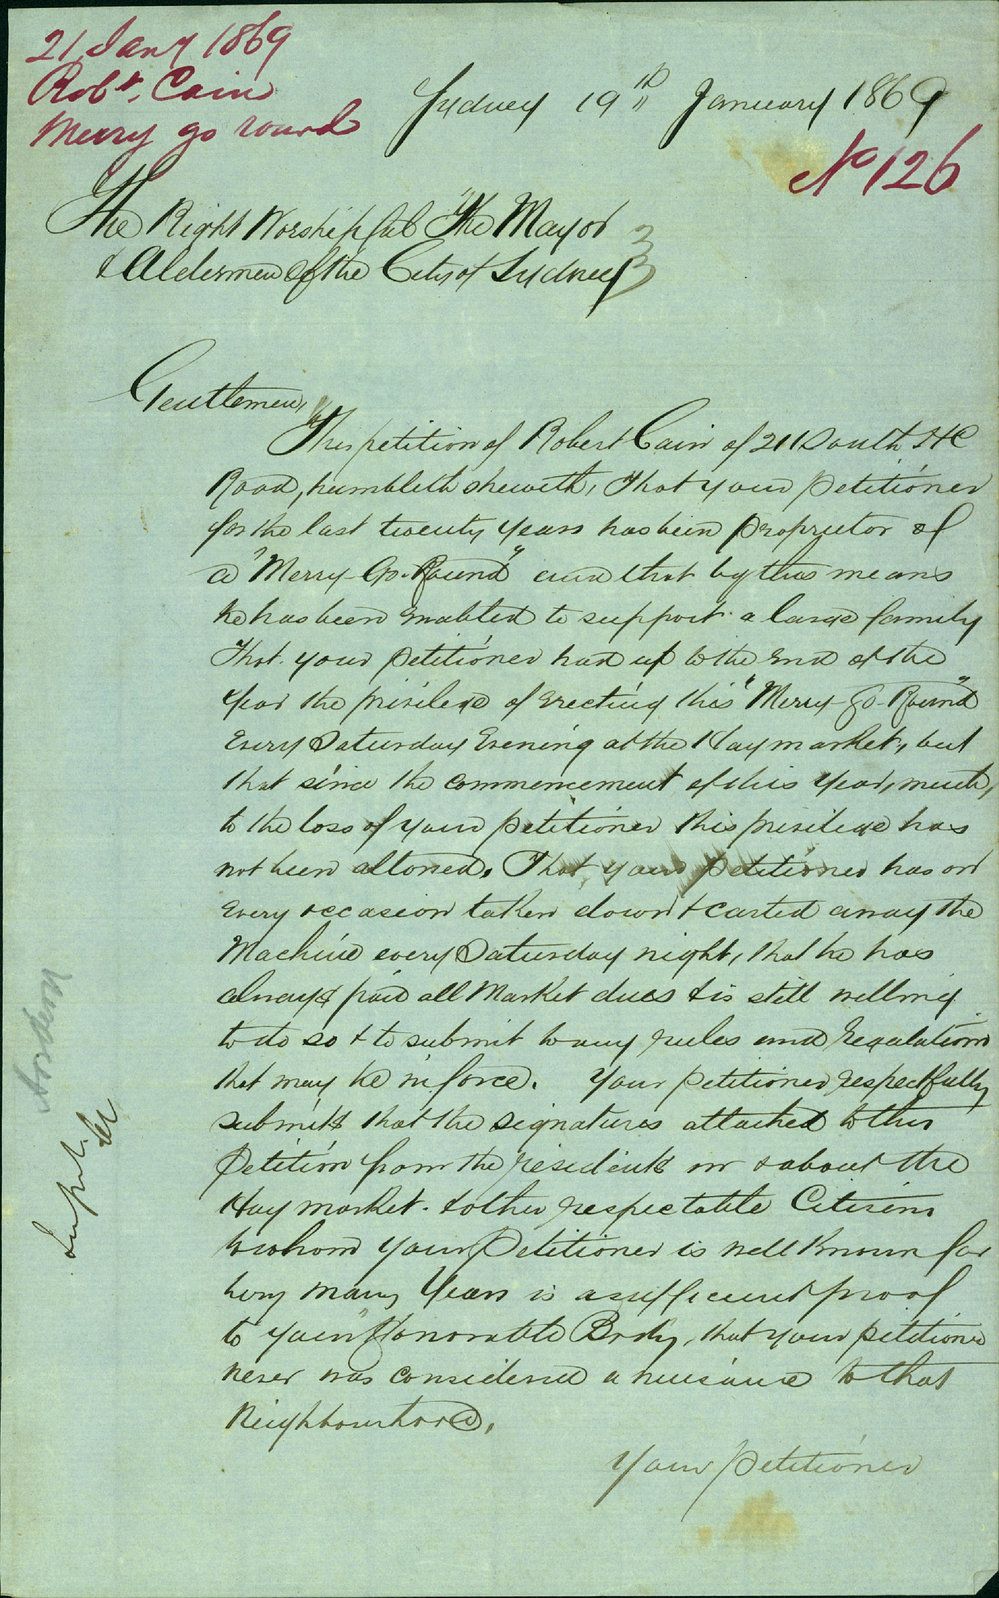 21 Jany 1869
Robt. Cain
Merry go round
Sydney 19th January 1869
No 126
The Right Worshipful The Mayor
& Aldermen of the City of Sydney
Gentlemen,
This petition of Robert Cain of 211 South Hd
Road, humbleth sheweth, That your petitioner
for the last twenty years has been proprietor of
a "Merry-Go-Round" and that by this means
he has been enabled to support a large family
That your petitioner had up to the end of the
Year the privilege of erecting this "Merry-Go-Round"
Every Saturday Evening at the Haymarket, but
that since the commencement of this Year, much,
to the loss of your petitioner this privilege has
not been allowed. That your petitioner has on
Every occasion taken down & carted away the
Machine every Saturday night, that he has
always paid all Market dues & is still willing
to do so & to submit to any rules and Regulations
that may be in force. Your petitioner respectfully
submits that the signatures attached to this
Petition from the residents in & about the
Haymarket. & other respectable Citizens
to whom your Petitioner is well known for
very many Years is a sufficient proof
to your Honorable Body, that your petitioner
never was considered a nuisance to that
Neighbourhood.
Your petitioner